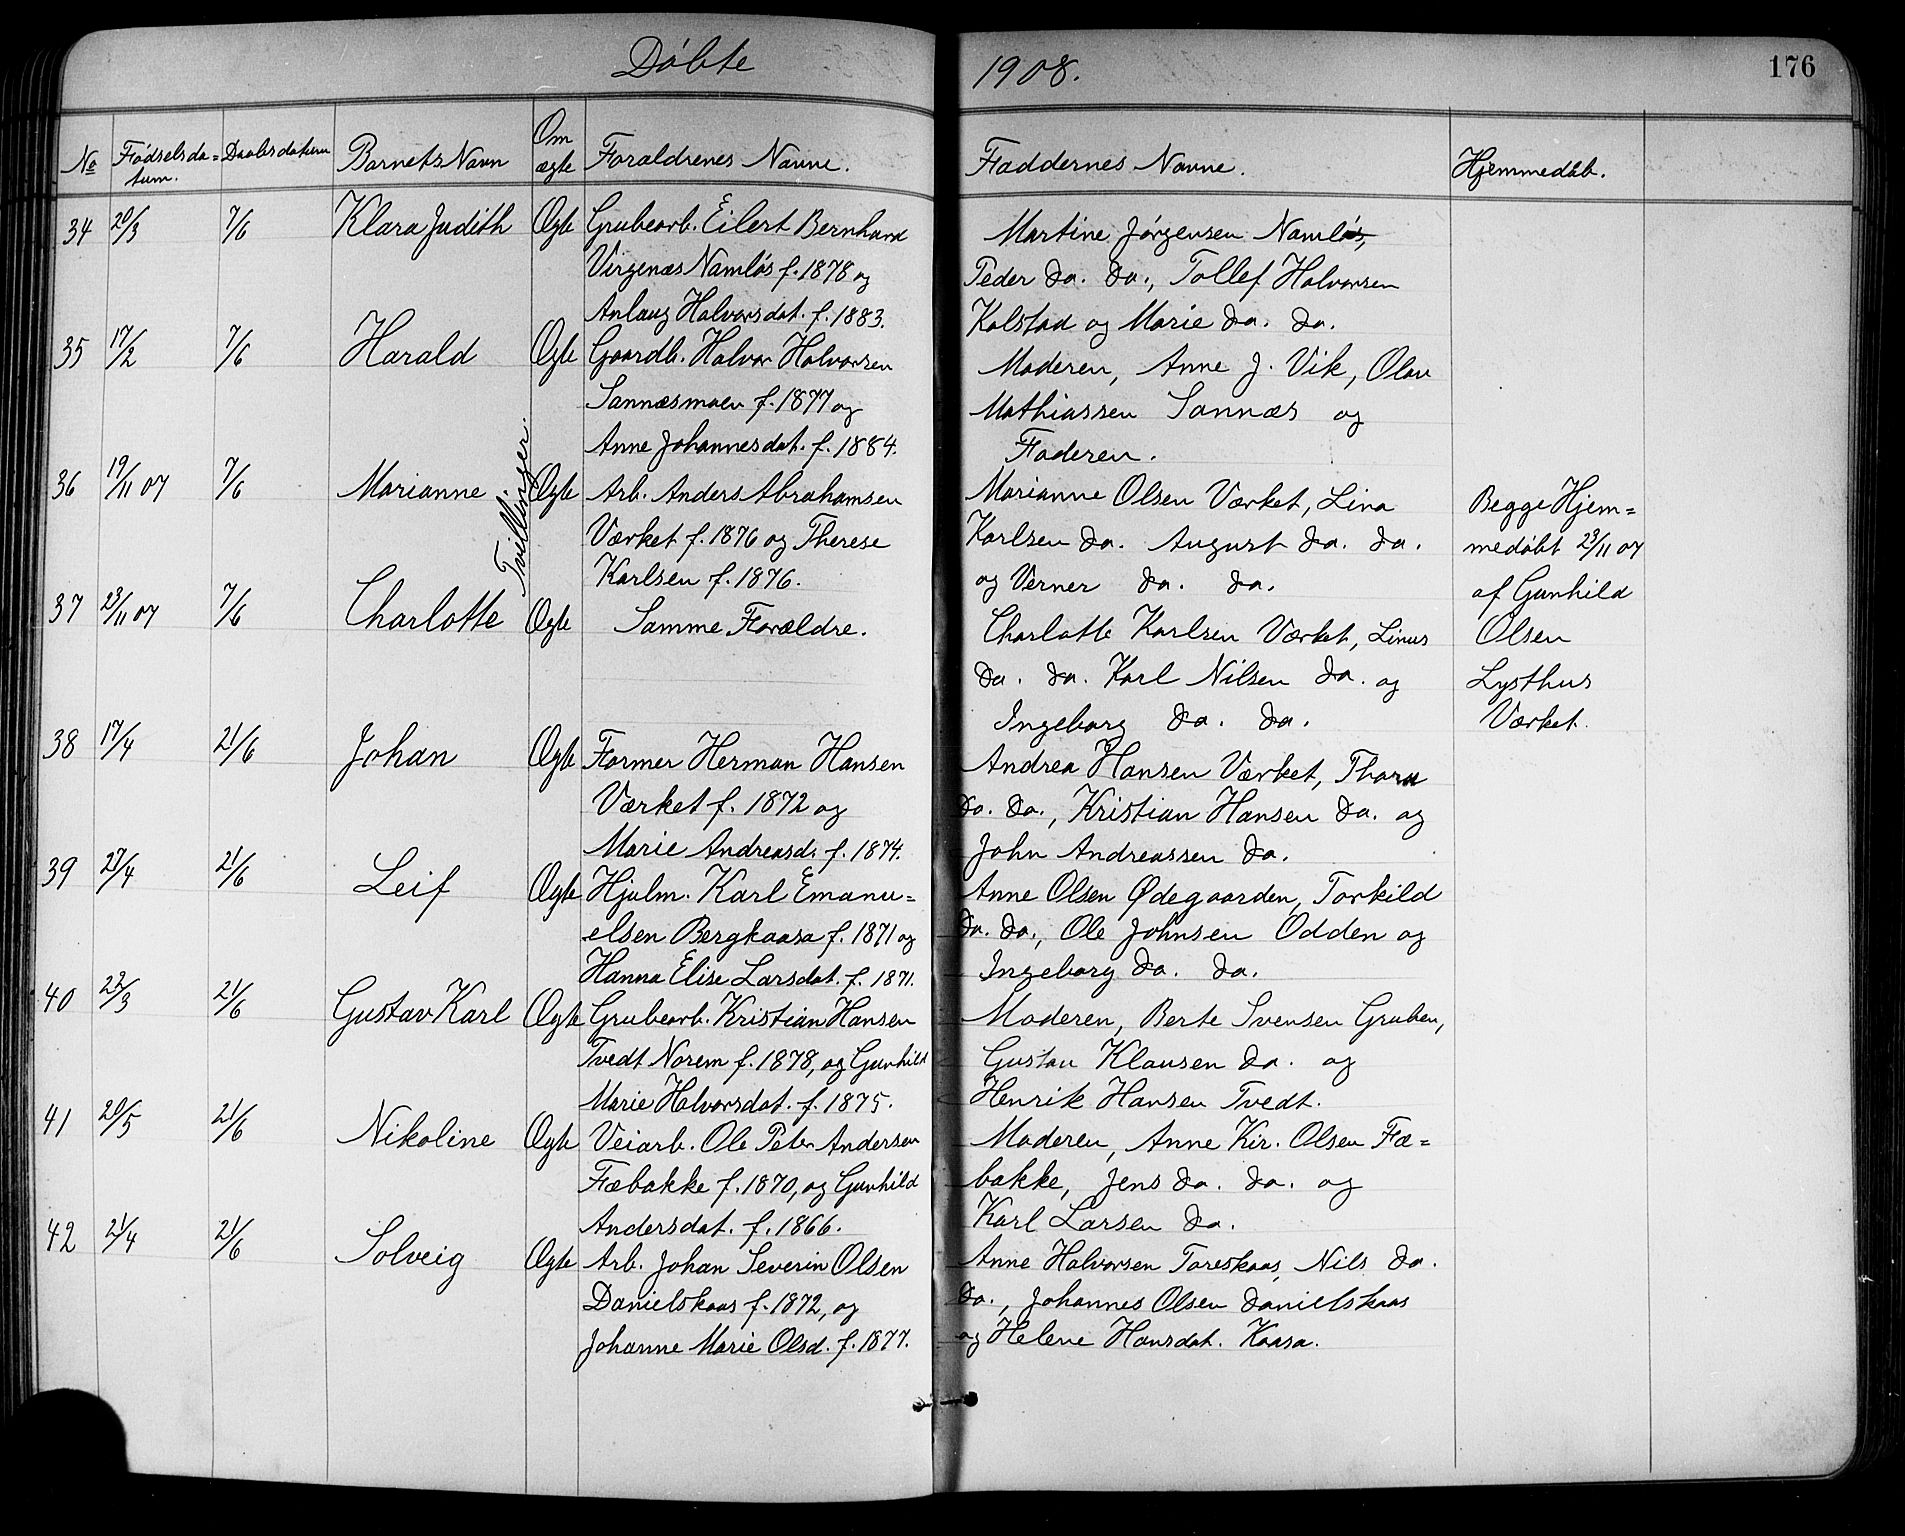 Döbte 1908. 176
No Födselsda= tum. Daabsdatum Barnets Navn Om ægte Forældrenes Navne. Faddernes Navne. Hjemmedåb.
34 20/3 7/6 Klara Judith Ægte Grubearb. Eilert Bernhard
Virgenæs Namlös f. 1878 og
Anlaug Halvorsdat. f. 1883.
Martine Jörgensen Namlös,
Peder do. do., Tollef Halvorsen
Kolstad og Marie do. do.
35 17/2 7/6 Harald Ægte Gaardb. Halvor Halvorsen
Sannæsmoen f. 1877 og
Anne Johannesdat. f. 1884.
Moderen, Anne J. Vik, Olav
Mathiassen Sannæs og
Faderen.
Tvillinger.
36 19/11 07 7/6 Marianne Ægte Arb. Anders Abrahamsen
Værket f. 1876 og Therese
Karlsen f. 1876.
Marianne Olsen Værket, Lina
Karlsen do. August do. do.
og Verner do. do.
Begge Hjem=
medöbt 23/11 07
af Gunhild
Olsen
Lysthus
Værket.
37 23/11 07 7/6 Charlotte Ægte Samme Forældre.
Charlotte Karlsen Værket, Linus
do. do. Karl Nilsen do. og
Ingeborg do. do.
38 17/4 21/6 Johan Ægte Former Herman Hansen
Værket f. 1872 og
Marie Andreasd. f. 1874.
Andrea Hansen Værket, Thora
do. do., Kristian Hansen do. og
John Andreassen do.
39 27/4 21/6 Leif Ægte Hjulm. Karl Emanu=
elsen Bergkaasa f. 1871 og
Hanna Elise Larsdat. f. 1871.
Anne Olsen Ødegaarden, Torkild
do. do., Ole Johnsen Odden og
Ingeborg do. do.
40 22/3 21/6 Gustav Karl Ægte Grubearb. Kristian Hansen
Tvedt Norem f. 1878, og Gunhild
Marie Halvorsdat. f. 1875.
Moderen, Berte Svensen Gruben,
Gustav Klausen do. og
Henrik Hansen Tvedt.
41 20/5 21/6 Nikoline Ægte Veiarb. Ole Peter Andersen
Fæbakke f. 1870, og Gunhild
Andersdat. f. 1866.
Moderen, Anne Kir. Olsen Fæ=
bakke, Jens do. do. og
Karl Larsen do.
42 21/4 21/6 Solveig Ægte Arb. Johan Severin Olsen
Danielskaas f. 1872, og
Johanne Marie Olsd. f. 1877.
Anne Halvorsen Toreskaas, Nils do.
do., Johannes Olsen Danielskaas
og Helene Hansdat. Kaasa.